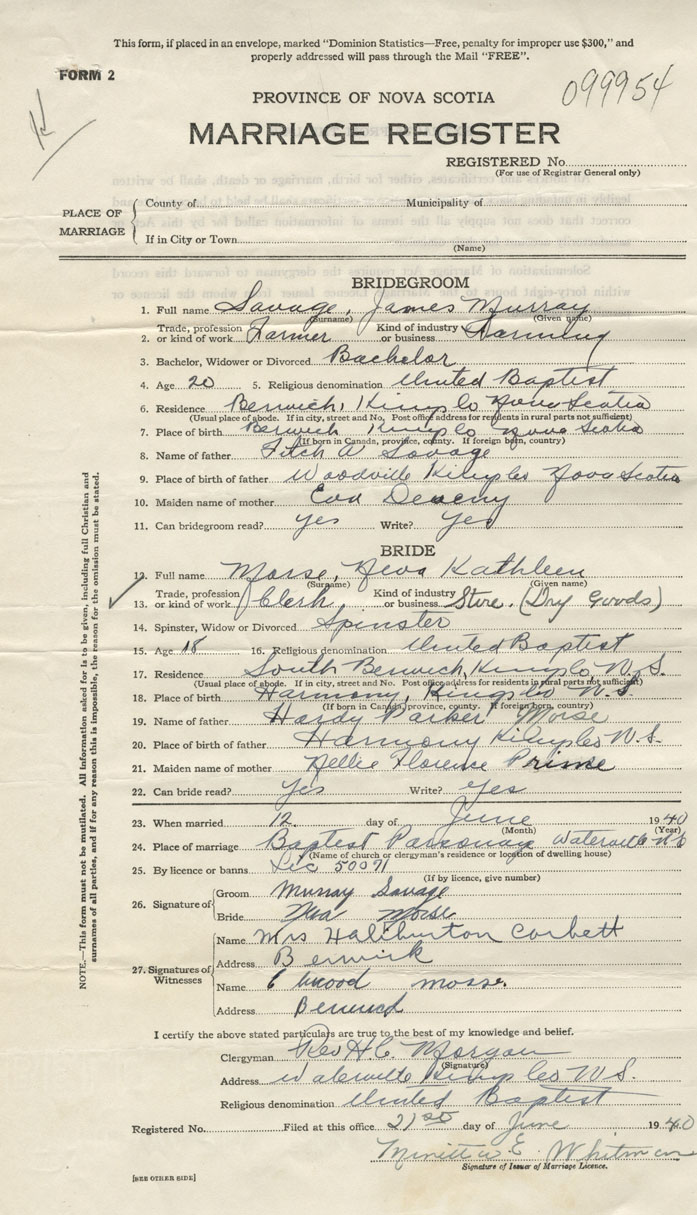 This form, if placed in an envelope, marked "Dominion Statistics—Free, penalty for improper use $300," and
properly addressed will pass through the Mail "FREE".
FORM 2
099954
PROVINCE OF NOVA SCOTIA
MARRIAGE REGISTER
REGISTERED No.
(For use of Registrar General only)
PLACE OF MARRIAGE
County of Municipality of
If in City or Town
(Name)
BRIDEGROOM
1. Full name Savage, James Murray
(Surname) (Given name)
2. Trade, profession or kind of work Farmer Kind of industry or business Farming
3. Bachelor, Widower or Divorced Bachelor
4. Age 20 5. Religious denomination United Baptist
6. Residence Berwick, Kings Co Nova Scotia
(Usual place of abode. If in city, street and No. Post office address for residents in rural parts not sufficient)
7. Place of birth Berwick Kings Co Nova Scotia
(If born in Canada, province, county. If foreign born, country)
8. Name of father Fitch A Savage
9. Place of birth of father Woodville Kings Co Nova Scotia
10. Maiden name of mother Eva
11. Can bridegroom read? yes Write? yes
BRIDE
12. Full name Morse, Neva Kathleen
(Surname) (Given name)
13. Trade, profession or kind of work Clerk, Kind of industry or business Store. (Dry Goods)
14. Spinster, Widow or Divorced Spinster
15. Age 18 16. Religious denomination United Baptist
17. Residence South Berwick, Kings Co N.S.
(Usual place of abode. If in city, street and No. Post office address for residents in rural parts not sufficient)
18. Place of birth Harmony, Kings Co N.S
(If born in Canada, province, county. If foreign born, country)
19. Name of father Hardy Parker Morse
20. Place of birth of father Harmony Kings Co N.S.
21. Maiden name of mother Nellie Florence Prime
22. Can bride read? yes Write? yes
23. When married 12 day of June 1940
(Month) (Year)
24. Place of marriage Baptist Parsonage Waterville N.S
(Name of church or clergyman's residence or location of dwelling house)
25. By licence or banns Lic 50071
(If by licence, give number)
26. Signature of Groom Murray Savage
Bride Neva Morse
27. Signatures of Witnesses
Name Mrs Haliburton Corbett
Address Berwick
Name wood morse.
Address Berwick
I certify the above stated particulars are true to the best of my knowledge and belief.
Clergyman Rev H.C. Morgan
(Signature)
Address Waterville Kings Co N.S.
Religious denomination United Baptist
Registered No. Filed at this office 21st day of June 1940
E. Whitman
Signature of Issuer of Marriage Licence.
[SEE OTHER SIDE]
NOTE.—This form must not be mutilated. All information asked for is to be given, including full Christian and
surnames of all parties, and if for any reason this is impossible, the reason for the omission must be stated.